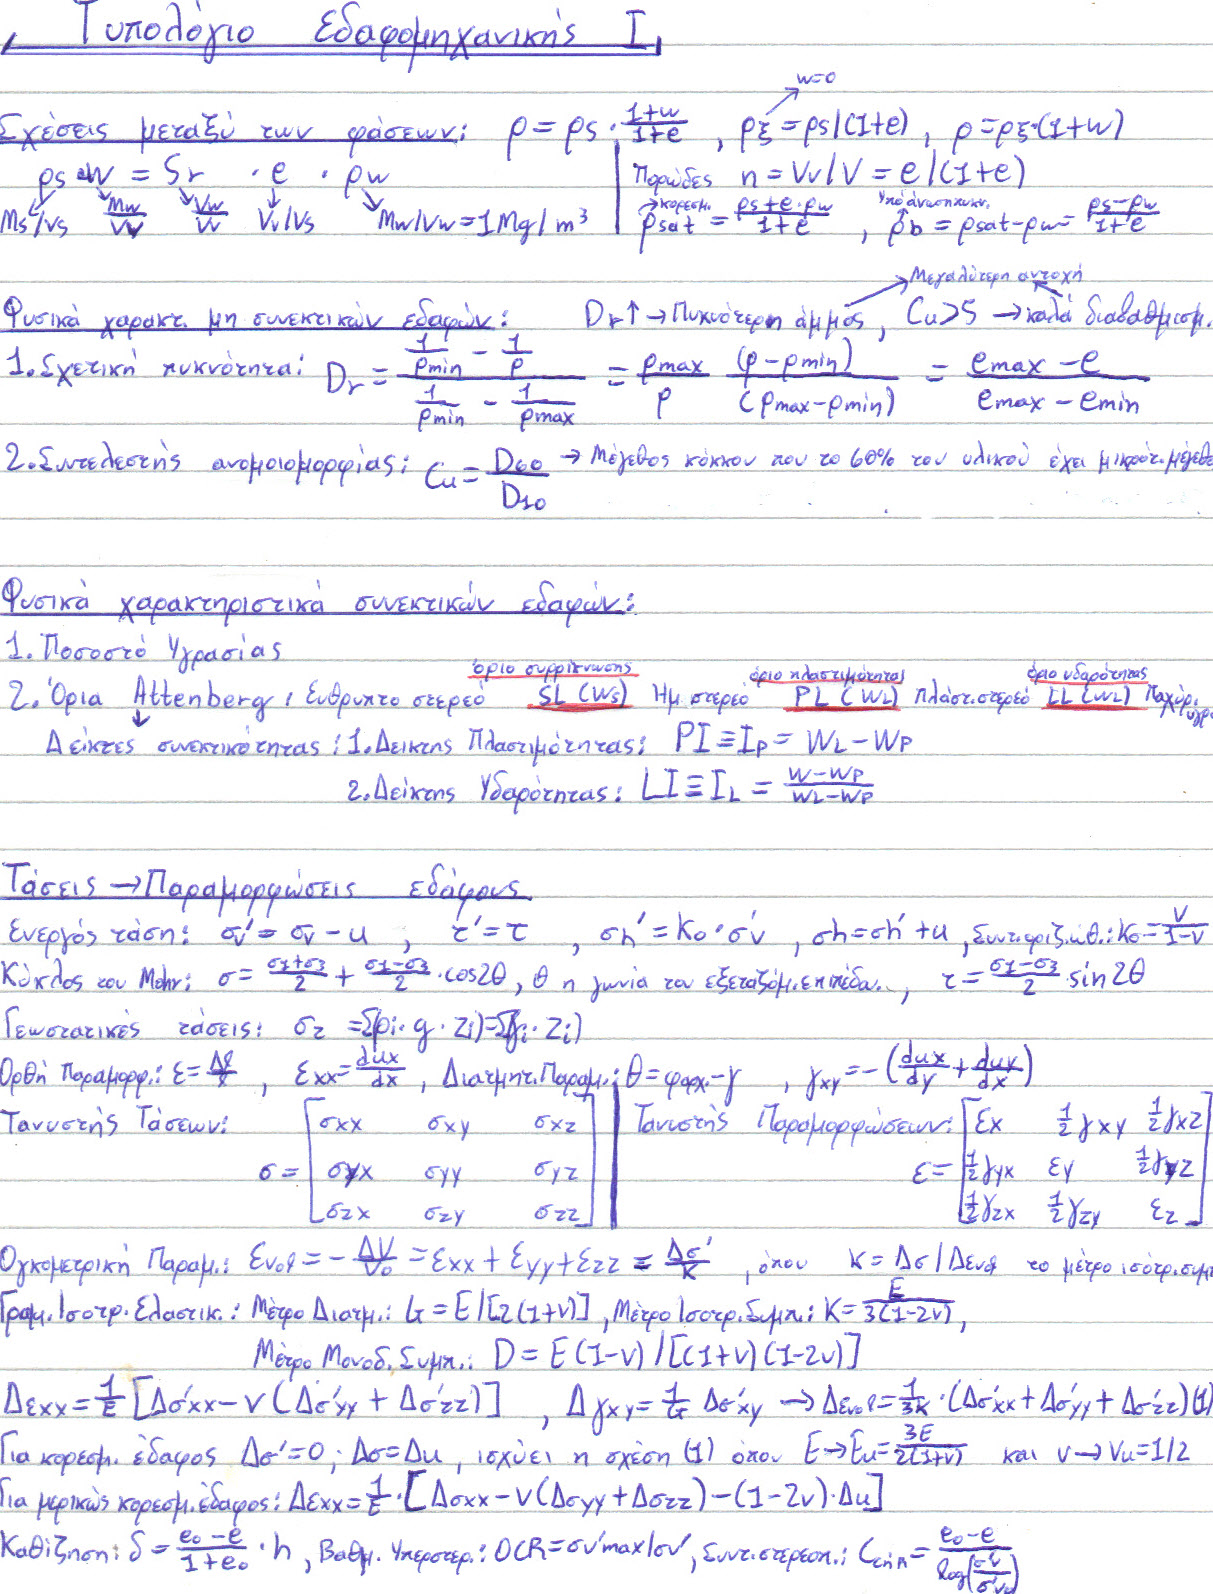 Τυπολόγιο Εδαφομηχανικής Ι
w=0
Σχέσεις μεταξύ των φάσεων: ρ = ρs · (1+w)/(1+e) , ρξ = ρs/(1+e) , ρ=ρξ·(1+w)
ρs · w = Sr · e · ρw
Πορώδες n = Vv/V = e/(1+e)
Ms/Vs Mw/Vv Vw/Vv Vv/Vs Mw/Vw = 1Mg/m³
κορεσμ. ρsat = (ρs+e·ρw)/(1+e) , Υπό άνωση πυκν. ρb = ρsat-ρw = (ρs-ρw)/(1+e)
Μεγαλύτερη αντοχή
Φυσικά χαρακτ. μη συνεκτικών εδαφών: Dr↑ → Πυκνότερη άμμος, Cu>5 → καλά διαβαθμισμ.
1. Σχετική πυκνότητα: Dr = (1/ρmin - 1/ρ)/(1/ρmin - 1/ρmax) = ρmax/ρ (ρ-ρmin)/(ρmax-ρmin) = (emax - e)/(emax - emin)
2. Συντελεστής ανομοιομορφίας: Cu = D60/D10 → Μέγεθος κόκκου που το 60% του υλικού έχει μικρότ. μέγεθ
Φυσικά χαρακτηριστικά συνεκτικών εδαφών:
1. Ποσοστό Υγρασίας
όριο συρρίκνωσης όριο πλαστιμότητας όριο υδαρότητας
2. Όρια Attenberg: Εύθρυπτο στερεό SL (Ws) Ημιστερεό PL (WL) Πλάστ. στερεό LL (WL) Παχύρ. υγρό
Δείκτες συνεκτικότητας: 1. Δείκτης Πλαστιμότητας: PI ≡ IP = WL - WP
2. Δείκτης Υδαρότητας: LI ≡ IL = (W-WP)/(WL-WP)
Τάσεις → Παραμορφώσεις εδάφους
Ενεργός τάση: σv' = σv - u , τ' = τ , σh' = Ko·σv' , σh=σh'+u , Συντ. οριζ. ώθ.: Ko = ν/(1-ν)
Κύκλος του Mohr: σ = (σ1+σ3)/2 + (σ1-σ3)/2 · cos2θ, θ η γωνία του εξεταζόμ. επιπέδου , τ = (σ1-σ3)/2 · sin2θ
Γεωστατικές τάσεις: σz = Σ(ρi · g · zi) = Σ(γi · zi)
Ορθή Παραμορφ.: ε = Δl/l , εxx = dux/dx , Διατμητ. Παραμ.: θ = φαρχ. - γ , γxy = -(dux/dy + duy/dx)
Τανυστής Τάσεων: Τανυστής Παραμορφώσεων:
σ = [σxx σxy σxz ε = [εx ½γxy ½γxz
σyx σyy σyz ½γyx εy ½γyz
σzx σzy σzz] ½γzx ½γzy εz]
Ογκομετρική Παραμ.: εvol = - ΔV/Vo = εxx + εyy + εzz = Δσ'/K , όπου K = Δσ/Δεvol το μέτρο ισότρ. συμπ
Γραμ. Ισοτρ. Ελαστικ.: Μέτρο Διατμ.: G = E/[2(1+ν)] , Μέτρο Ισοτρ. Συμπ.: K = E/3(1-2ν) ,
Μέτρο Μονοδ. Συμπ.: D = E(1-ν)/[(1+ν)(1-2ν)]
Δεxx = 1/E [Δσ'xx - ν(Δσ'yy + Δσ'zz)] , Δγxy = 1/G Δσ'xy → Δεvol = 1/3K · (Δσ'xx + Δσ'yy + Δσ'zz) (1)
Για κορεσμ. έδαφος Δσ'=0 , Δσ=Δu , ισχύει η σχέση (1) όπου E → Eu = 3E/2(1+ν) και ν → νu = 1/2
Για μερικώς κορεσμ. έδαφος: Δεxx = 1/E · [Δσxx - ν(Δσyy + Δσzz) - (1-2ν)·Δu]
Καθίζηση: δ = (eo - e)/(1+eo) · h , Βαθμ. Υπερστερ.: OCR = σv'max/σv' , Συντ. στερεοπ.: Cc ή r = (eo - e)/log(σ'v/σ'vo)